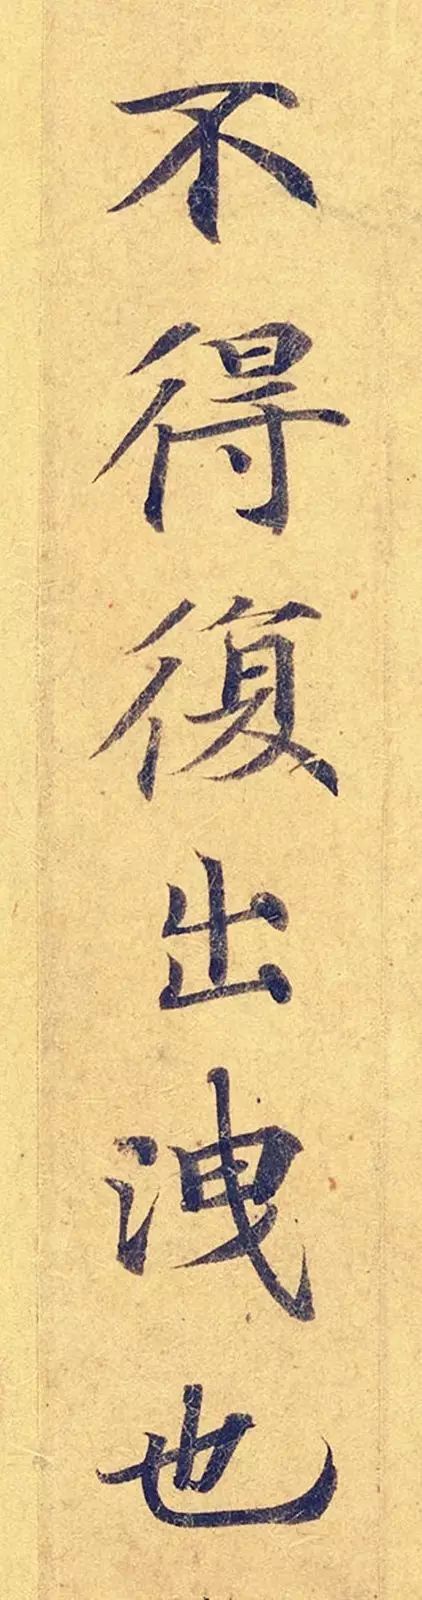 不得復出洩也